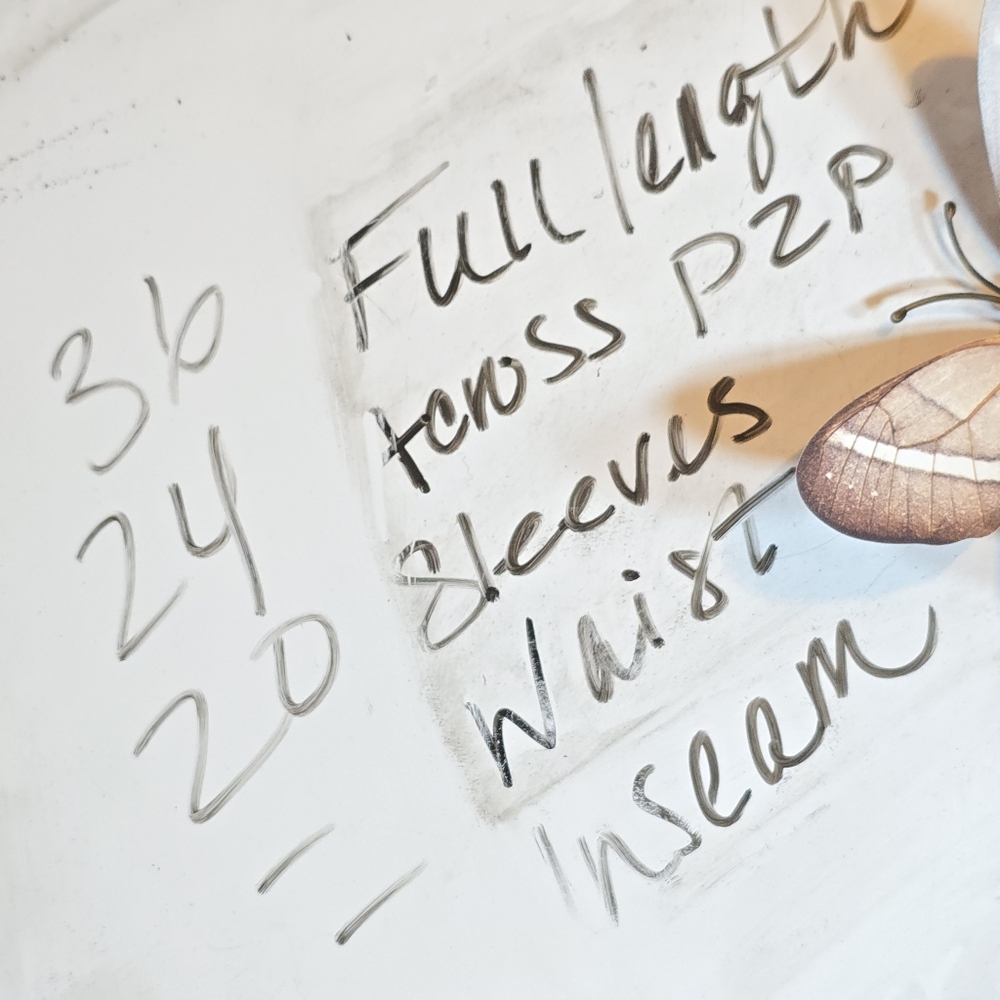 36 Full length
24 Across P2P
20 Sleeves
- Waist
- Inseam